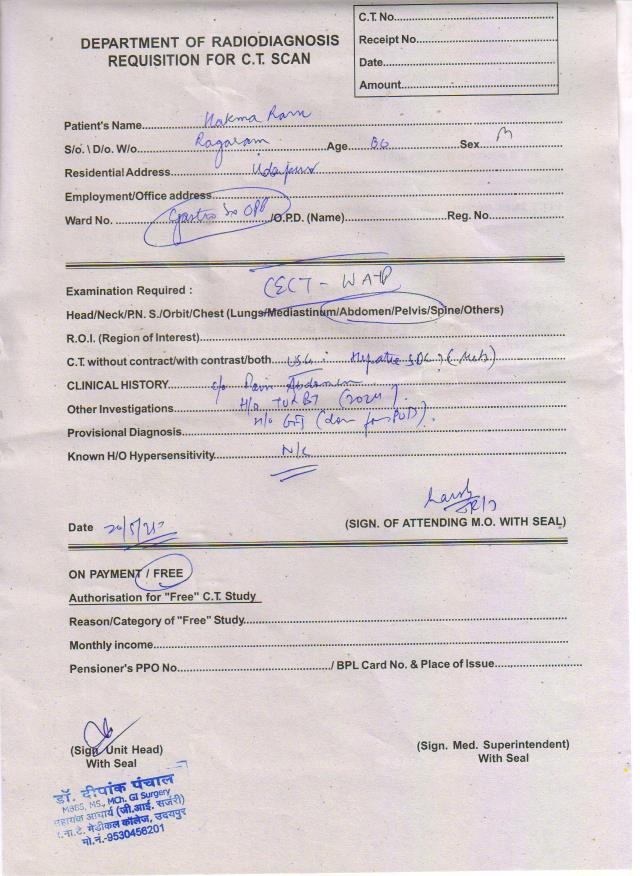 DEPARTMENT OF RADIODIAGNOSIS
REQUISITION FOR C.T. SCAN
C.T. No.
Receipt No.
Date
Amount
Patient's Name Hakma Ram
S/o. \ D/o. W/o Ragaram Age Sex M
Residential Address Udaipur
Employment/Office address
Ward No. Gastro Sx OPD /O.P.D. (Name) Reg. No.
Examination Required : CECT - W A+P
Head/Neck/P.N. S./Orbit/Chest (Lungs/Mediastinum/Abdomen/Pelvis/Spine/Others)
R.O.I. (Region of Interest)
C.T. without contract/with contrast/both USG : Hepatic SOL ? (Mets)
CLINICAL HISTORY c/o Pain Abdomen
Other Investigations H/o TURBT (2024).
Provisional Diagnosis H/o GJ (done for
Known H/O Hypersensitivity N/K
Date
(SIGN. OF ATTENDING M.O. WITH SEAL)
ON PAYMENT / FREE
Authorisation for "Free" C.T. Study
Reason/Category of "Free" Study
Monthly income
Pensioner's PPO No. / BPL Card No. & Place of Issue
(Sign. Unit Head)
With Seal
(Sign. Med. Superintendent)
With Seal
डॉ. दीपांक पंचाल
MBBS, MS., MCh. GI Surgery
सहायक आचार्य (जी.आई. सर्जरी)
र.ना.टे. मेडीकल कॉलेज, उदयपुर
मो.नं.-9530456201